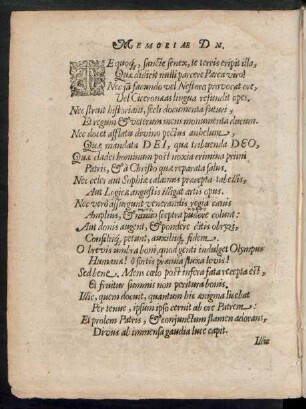 MEMORIAE DN.
TE quoq;, sancte senex, te terris eripit illa,
Quæ didicit nulli parcere Parca viro!
Nec jā facundo vel Nestora provocat ore,
Vel Ciceronæa lingua refundit opes.
Nec struit historiam, secli documenta
Et regum & veterum mens monumenta ducum.
Nec docet afflatu divino pectus anhelum
Quæ mandata DEI, quæ tribuenda DEO,
Quæ clades hominum post noxia crimina primi
Patris, & à Christo quæ reparata salus.
Nec celer aut Sophiæ calamus præcepta tabellis,
Aut Logicæ angustis illigat artis opus.
Nec verò assurgunt venerandis regia canis
Amplius, & sceptra colunt:
Aut donis augent, & pondere ditis obryzi,
Consiliiq; petunt, auxiliiq; fidem.
O brevis umbra hominū, quid genti indulget Olympus
Humanæ! ô sortis præmia fluxa levis!
Sed bene. Mens cœlo post infera fata recepta est,
Et fruitur summis non peritura bonis.
Illic, quem docuit, quantum hic ænigma licebat
Per tenue, ipsum ipso cernit ab ore Patrem:
Et prolem Patris, & conjunctum flamen adorans,
Divus ab immensa gaudia luce capit.
Illic